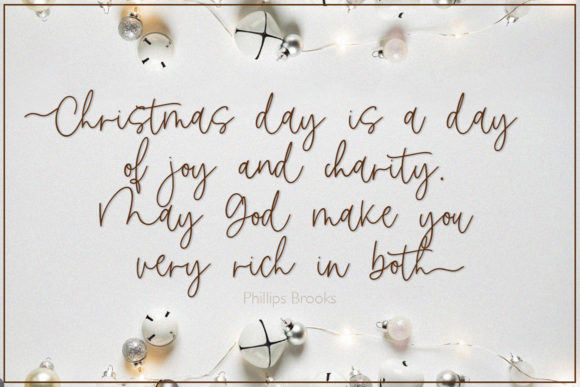 Christmas day is a day
of joy and charity.
May God make you
very rich in both
Phillips Brooks